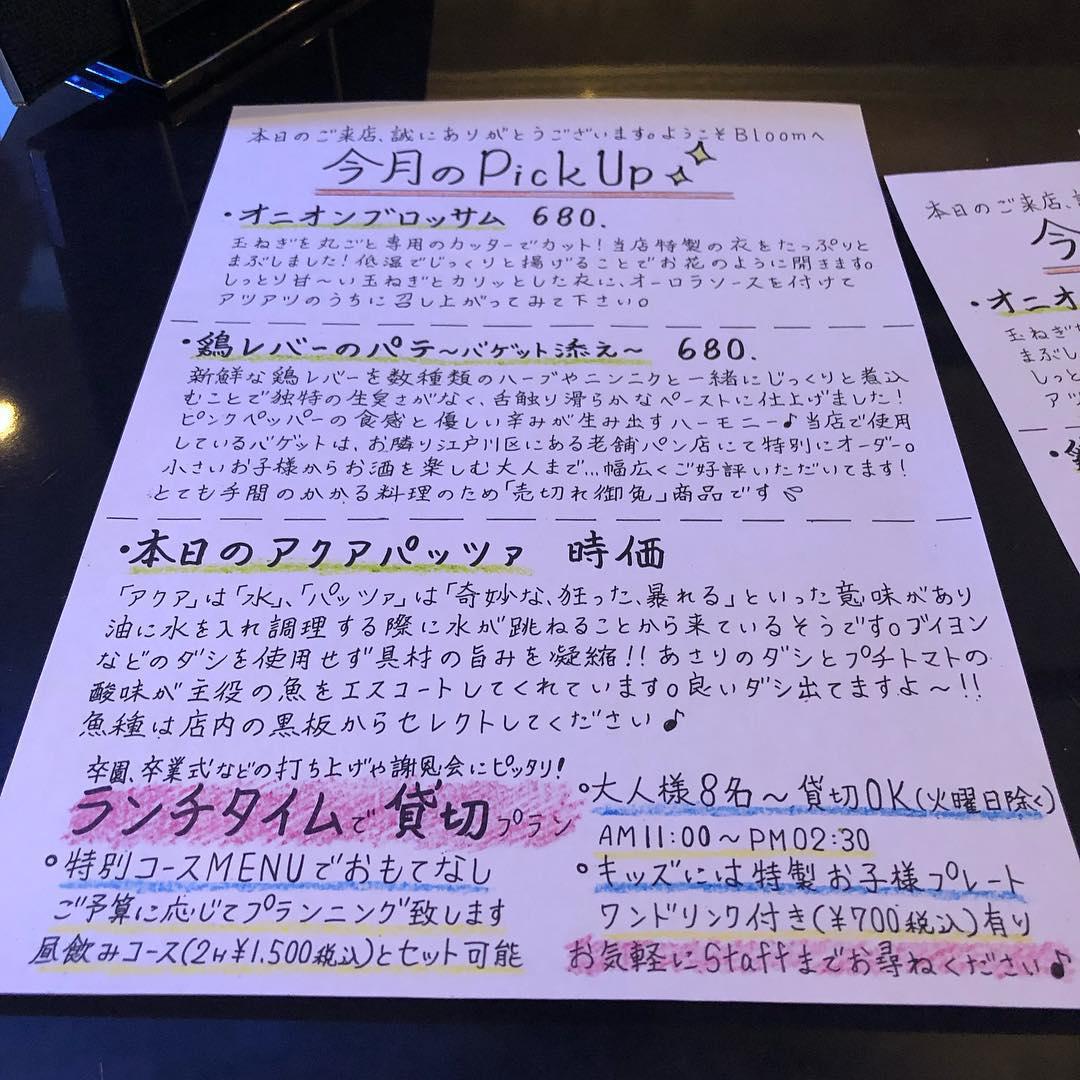 本日のご来店、誠にありがとうございます。ようこそBloomへ
今月のPick Up
・オニオンブロッサム 680.
玉ねぎを丸ごと専用のカッターでカット！当店特製の衣をたっぷりと
まぶしました！低温でじっくりと揚げることでお花のように開きます。
しっとり甘〜い玉ねぎとカリッとした衣に、オーロラソースを付けて
アツアツのうちに召し上がってみて下さい。
・鶏レバーのパテ〜バゲット添え〜 680.
新鮮な鶏レバーを数種類のハーブやニンニクと一緒にじっくりと煮込
むことで独特の生臭さがなく、舌触り滑らかなペーストに仕上げました！
ピンクペッパーの食感と優しい辛みが生み出すハーモニー♪当店で使用
しているバゲットは、お隣り江戸川区にある老舗パン店にて特別にオーダー。
小さいお子様からお酒を楽しむ大人まで...幅広くご好評いただいてます！
とても手間のかかる料理のため「売切れ御免」商品です
・本日のアクアパッツァ 時価
「アクア」は「水」、「パッツァ」は「奇妙な、狂った、暴れる」といった意味があり
油に水を入れ調理する際に水が跳ねることから来ているそうです。ブイヨン
などのダシを使用せず具材の旨みを凝縮！！あさりのダシとプチトマトの
酸味が主役の魚をエスコートしてくれています。良いダシ出てますよ〜！！
魚種は店内の黒板からセレクトしてください♪
卒園、卒業式などの打ち上げや謝恩会にピッタリ！
ランチタイムで貸切プラン
○特別コースMENUでおもてなし
ご予算に応じてプランニング致します
昼飲みコース(2H¥1.500税込)とセット可能
○大人様8名〜貸切OK(火曜日除く)
AM11:00〜PM02:30
○キッズには特製お子様プレート
ワンドリンク付き(¥700税込)有り
お気軽にStaffまでお尋ねください♪
本日のご来店、
今
・オニオ
玉ねぎ
まぶし
しっと
アツ